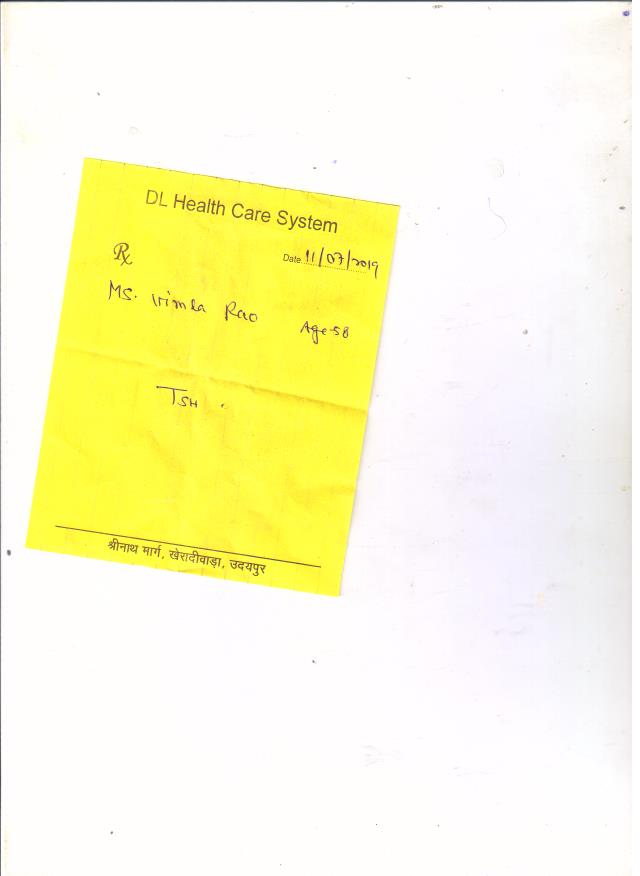 DL Health Care System
Date 11/07/2019
Rx
Ms. Vimla Rao Age 58
TSH
श्रीनाथ मार्ग, खेरादीवाड़ा, उदयपुर